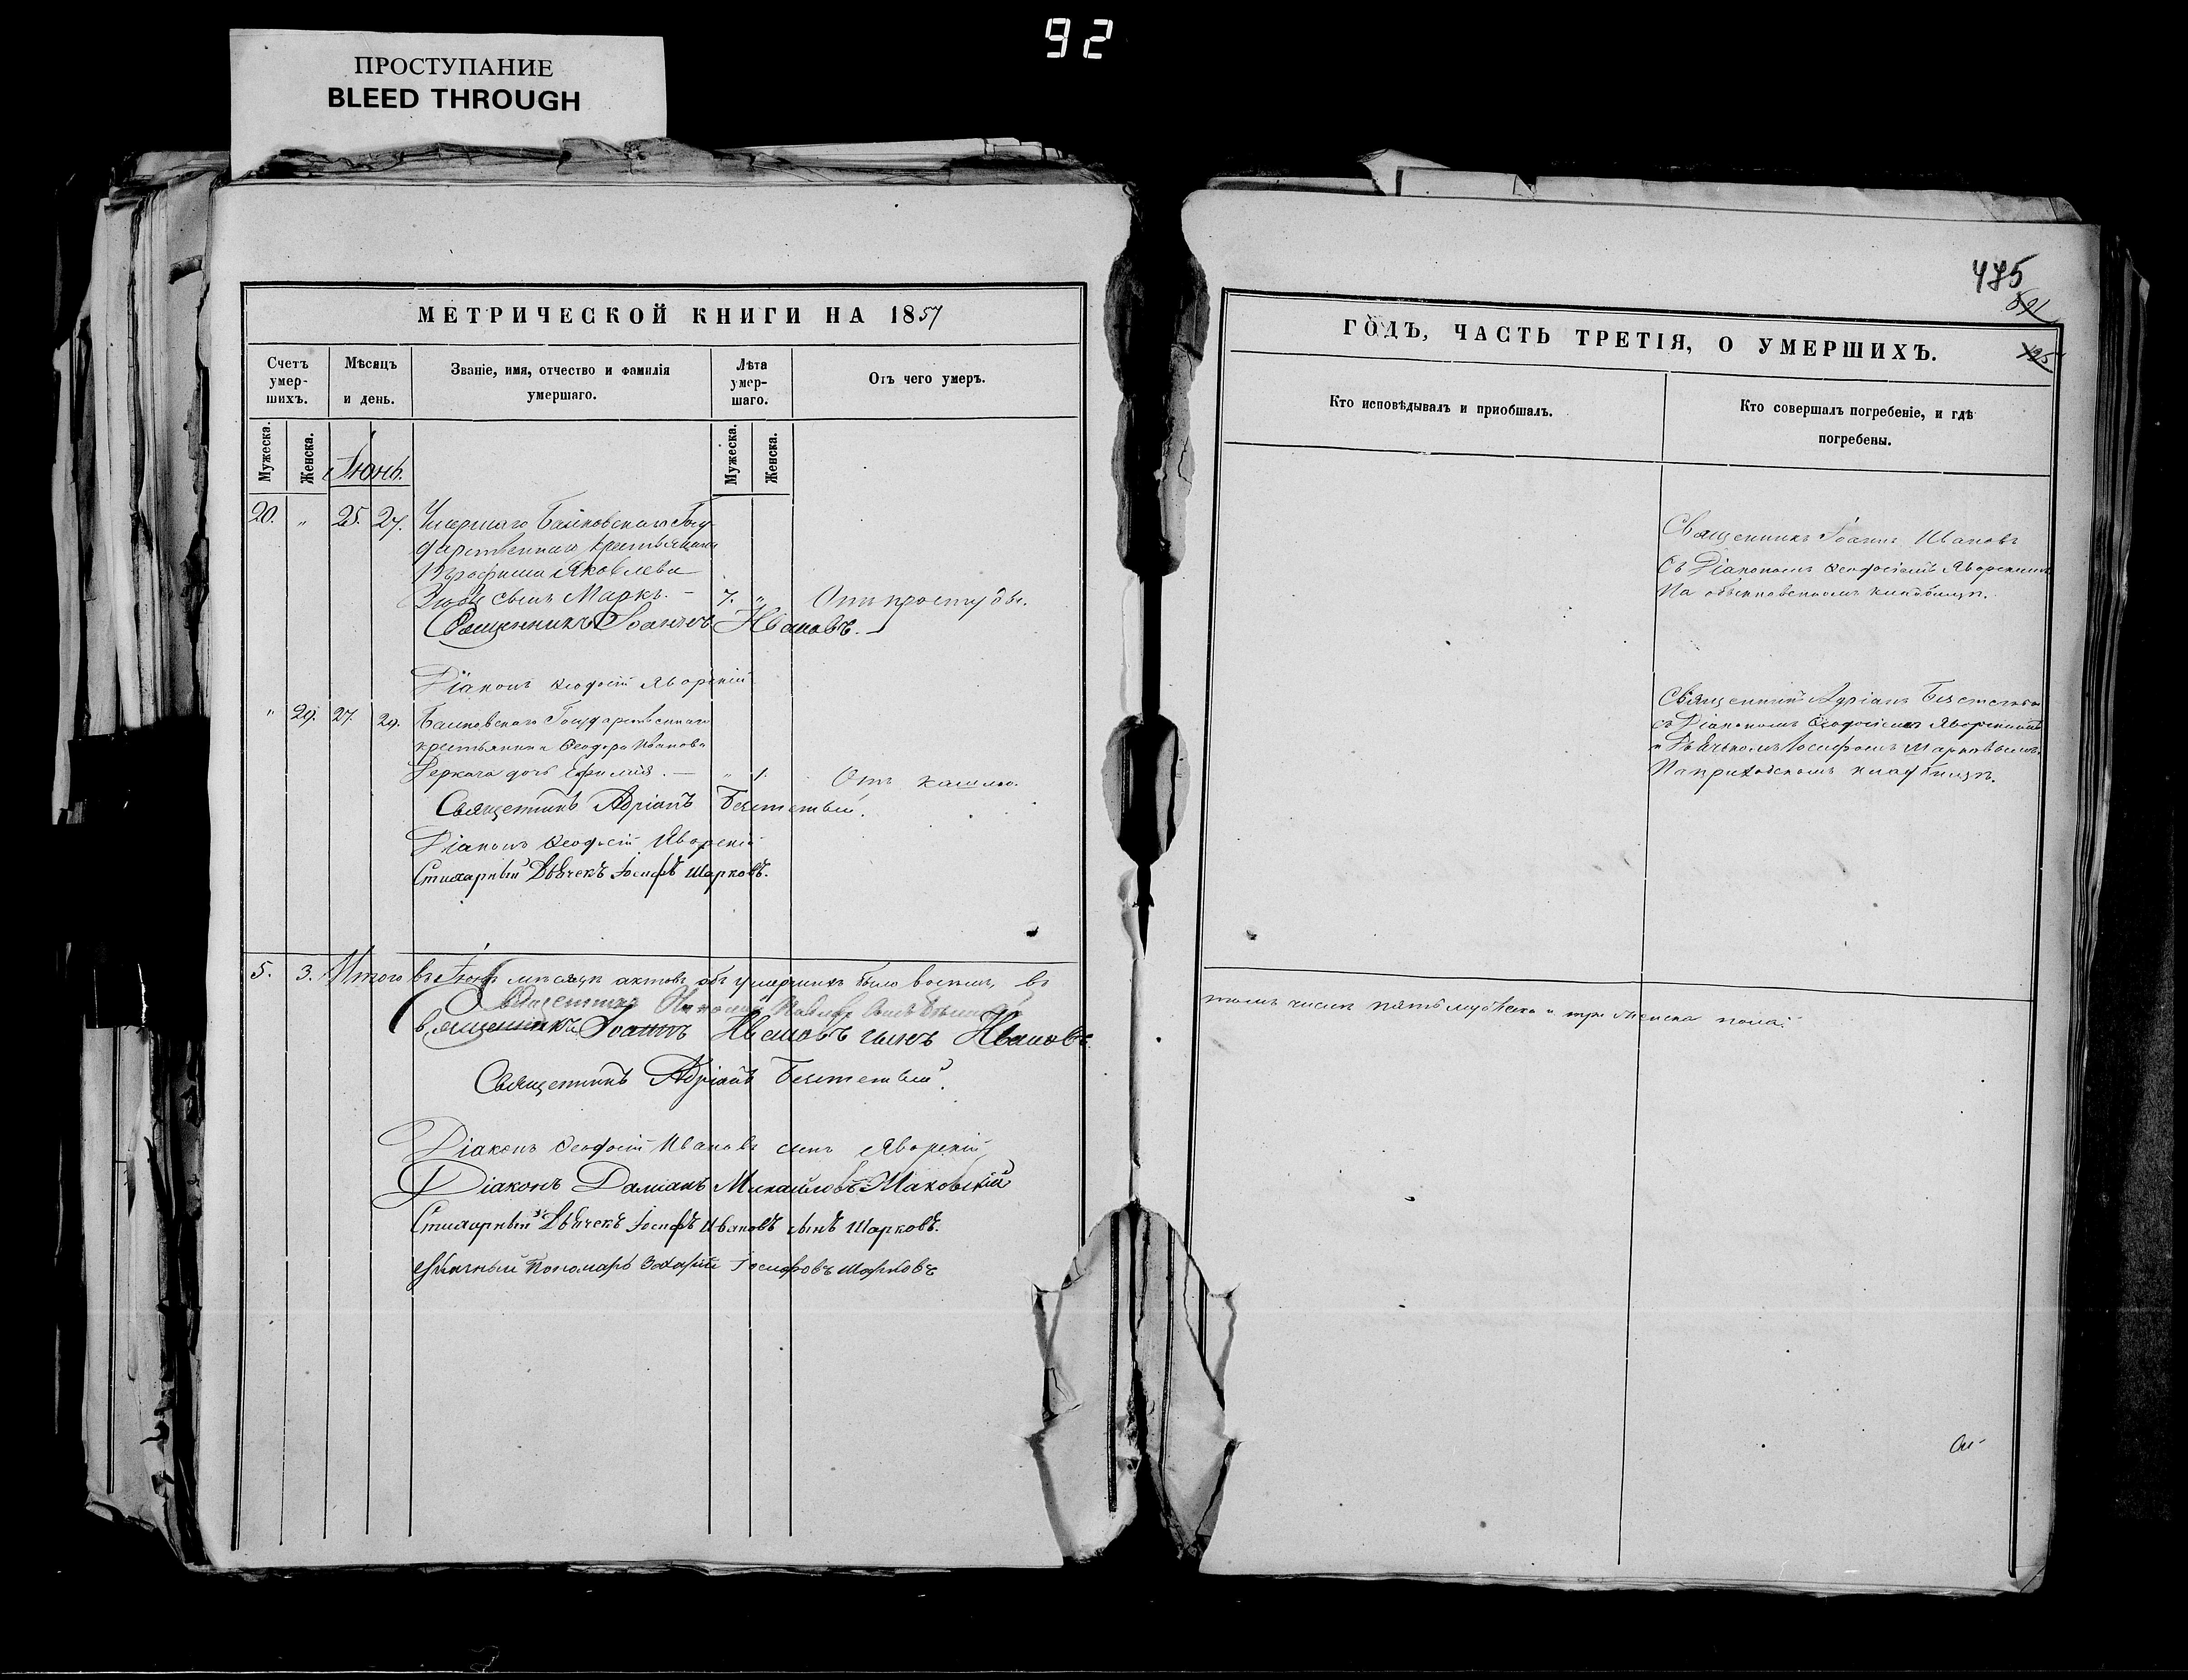 92
ПРОСТУПАНИЕ
BLEED THROUGH
МЕТРИЧЕСКОЙ КНИГИ НА 1857
Счетъ умер-шихъ.
Мѣсяцъ и день.
Званіе, имя, отчество и фамилія умершаго.
Лѣта умер-шаго.
Отъ чего умеръ.
Мужеска.
Женска.
Іюнь.
Мужеска.
Женска.
20. „ 25. 27. Умершаго Байковскаго Госу-
дарственнаго крестьянина
Яковлева
сынъ Маркъ. — 7. „ Отъ простуды.
Священникъ Іоаннъ Ивановъ.
Діаконъ Ѳеодосій Яворскій
„ 29. 27. 29. Байковскаго Государственнаго
крестьянина Ѳеодора Иванова
Деркача дочь Евфимія. — „ 1. Отъ кашлю.
Священникъ Адріанъ
Діаконъ Ѳеодосій Яворскій
Стихарный Дьячекъ Іосифъ Шарковъ.
5. 3. Итого въ Іюнѣ мѣсяцѣ актовъ объ умершихъ было восемь, въ
Священникъ
Священникъ Іоаннъ Ивановъ сынъ Ивановъ.
Священникъ Адріанъ
Діаконъ Ѳеодосій Ивановъ сынъ Яворскій
Діаконъ Даміанъ Михайловъ Маковскій
Стихарный Дьячекъ Іосифъ Ивановъ сынъ Шарковъ.
Пономарь Захарій Іосифовъ Шарковъ
475
ГОДЪ, ЧАСТЬ ТРЕТІЯ, О УМЕРШИХЪ.
Кто исповѣдывалъ и приобщалъ.
Кто совершалъ погребеніе, и гдѣ погребены.
Священникъ Іоаннъ Ивановъ
съ Діакономъ Ѳеодосіемъ Яворскимъ
На обыкновенномъ кладбищѣ.
Священникъ Адріанъ
съ Діакономъ Ѳеодосіемъ Яворскимъ
и Дьячкомъ Іосифомъ Шарковымъ
На приходскомъ кладбищѣ.
томъ числѣ пять мужеска и три женска пола.